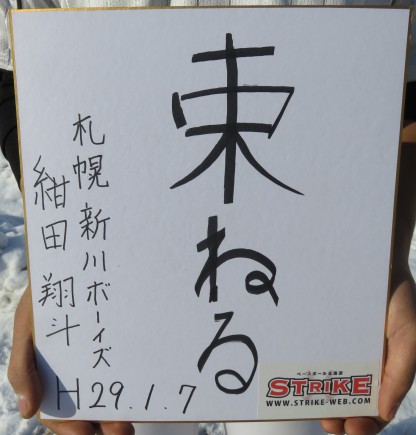 束ねる
札幌新川ボーイズ
紺田翔斗
H29.1.7
ベースボール北海道
STRIKE
WWW.STRIKE-WEB.COM